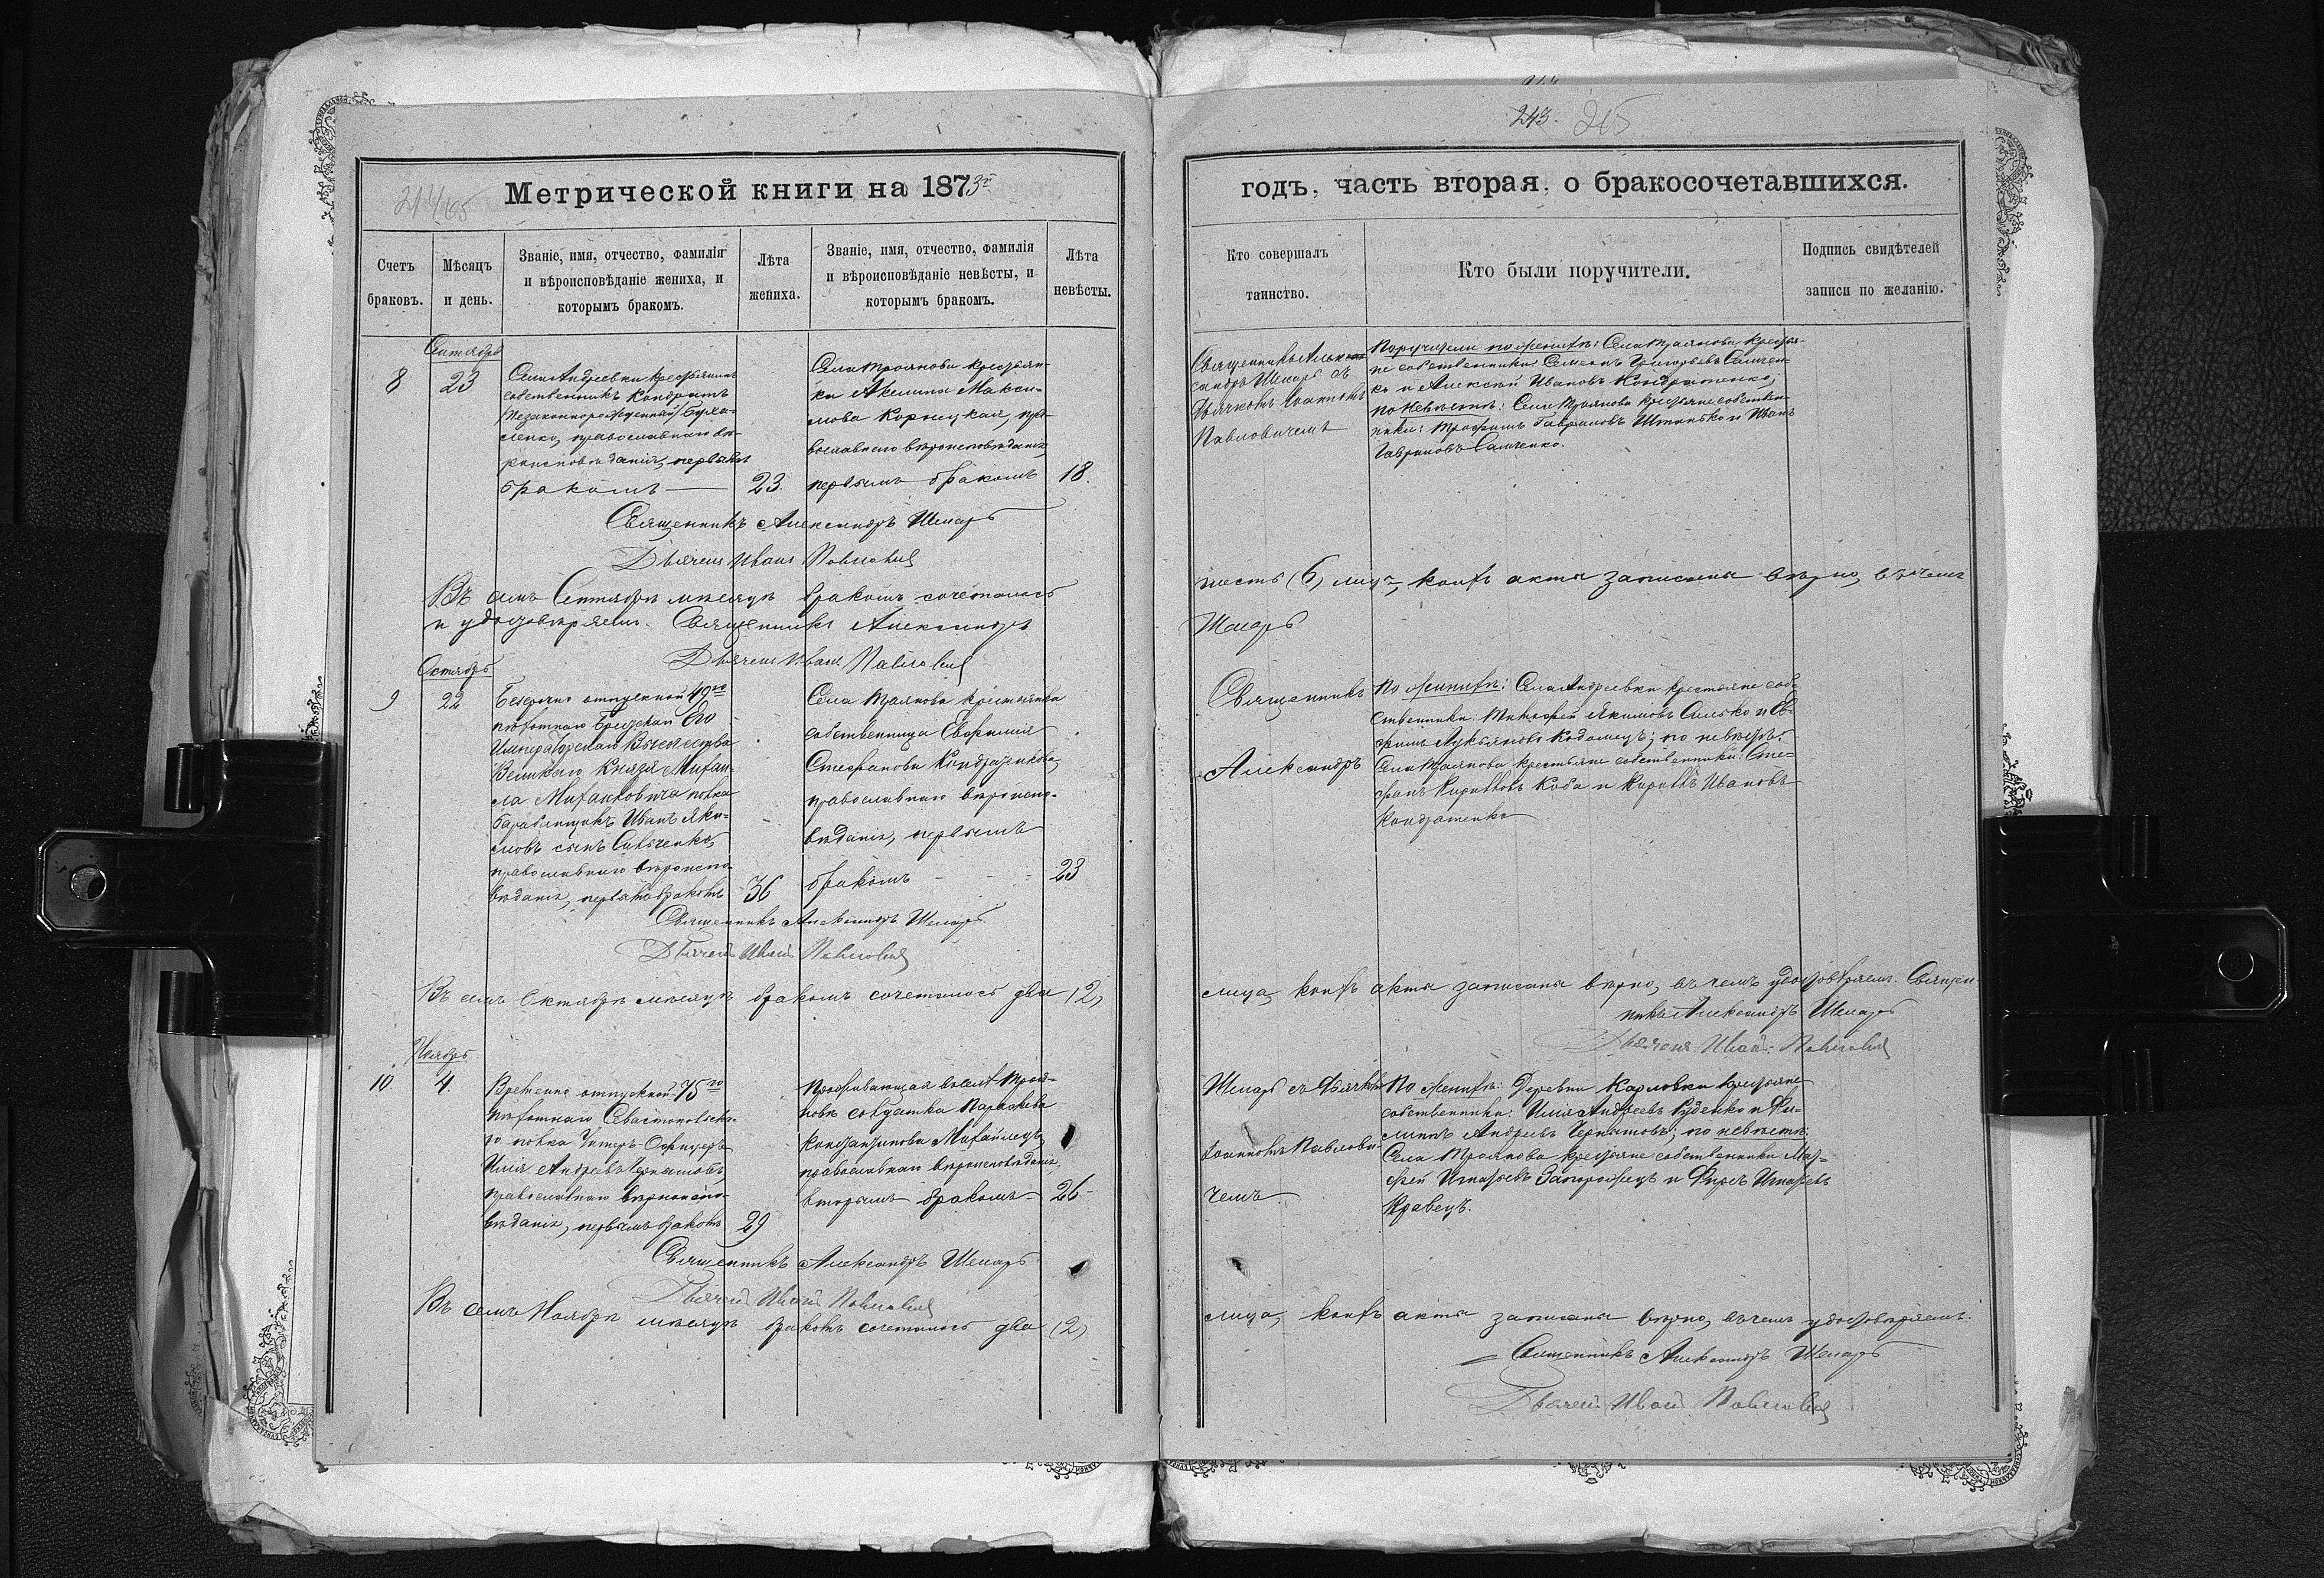 243. 215
214/105
Метрической книги на 1873й
годъ, часть вторая, о бракосочетавшихся.
Счетъ браковъ.
Мѣсяцъ и день.
Званіе, имя, отчество, фамилія
и вѣроисповѣданіе жениха, и
которымъ бракомъ.
Лѣта
жениха.
Званіе, имя, отчество, фамилія
и вѣроисповѣданіе невѣсты, и
которымъ бракомъ.
Лѣта
невѣсты.
Кто совершалъ
таинство.
Кто были поручители.
Подпись свидѣтелей
записи по желанію.
Сентябрь
8
23
Села Андреевки крестьянинъ
собственникъ Кондратъ
/незаконнорожденный/
православнаго вѣ-
роисповѣданія, первымъ
бракомъ
23.
Села Троянова крестьян-
ка Акилина Макси-
мова Корницкая, пра-
вославнаго вѣроисповѣданія,
первымъ бракомъ
18.
Священникъ Алек-
сандръ Шепарь съ
Дьячкомъ Іоанномъ
Павловичемъ
Поручители по женихѣ: Села Троянова крестья-
не собственники: Семенъ Григорьевъ Самчен-
ко и Алексѣй Ивановъ Кондратенко,
по невѣстѣ: Села Троянова крестьяне собствен-
ники: Трофимъ Гавриловъ и Иванъ
Гавриловъ Самченко.
Священникъ Александръ Шепарь
Дьячекъ Иванъ Павловичъ
Въ семъ Сентябрѣ мѣсяцѣ бракомъ сочеталось
шесть (6) лицъ, коихъ акты записаны вѣрно, въ чемъ
и удостовѣряемъ. Священникъ Александръ
Шепарь
Дьячекъ Иванъ Павловичъ
Октябрь
9
22
Безсрочно отпускной 49го
пѣхотнаго Брестскаго Его
Императорскаго Высочества
Великаго Князя Михаи-
ла Михайловича полка
барабанщикъ Иванъ Яки-
мовъ сынъ
православнаго вѣроиспо-
вѣданія, первымъ бракомъ
36
Села Троянова крестьянка
собственница Евфимія
Стефанова Кондратенкова,
православнаго вѣроиспо-
вѣданія, первымъ
бракомъ
23
Священникъ
Александръ
По женихѣ: Села Андреевки крестьяне соб-
ственники: Тимофей Якимовъ и Е-
фимъ Лукьяновъ Коломецъ; по невѣстѣ:
Села Троянова крестьяне собственники: Сте-
фанъ Кирилловъ Коба и Кириллъ Ивановъ
Кондратенко
Священникъ Александръ Шепарь
Дьячекъ Иванъ Павловичъ
Въ семъ Октябрѣ мѣсяцѣ бракомъ сочеталось два (2)
лица, коихъ акты записаны вѣрно, въ чемъ удостовѣряемъ. Священ-
никъ Александръ Шепарь
Дьячекъ Иванъ Павловичъ
Ноябрь
10
4.
Временно отпускной 75го
пѣхотнаго Севастопольска-
го полка Унтеръ-Офицеръ
Илія Андреевъ Черкашовъ,
православнаго вѣроиспо-
вѣданія, первымъ бракомъ
29
Проживающая въ селѣ Троя-
новѣ солдатка Параскева
Константинова Михайлецъ,
православнаго вѣроисповѣданія,
вторымъ бракомъ
26
Шепарь съ Дьячкомъ
Іоанномъ Павлови-
чемъ
По женихѣ: Деревни Карловки крестьяне
собственники: Илія Андреевъ Руденко и Фи-
липъ Андреевъ Черкашовъ; по невѣстѣ:
Села Троянова крестьяне собственники: Мат-
фей Игнатьевъ Запорожецъ и Фирсъ Игнатьевъ
Кравецъ.
Священникъ Александръ Шепарь
Дьячекъ Иванъ Павловичъ
Въ семъ Ноябрѣ мѣсяцѣ бракомъ сочеталось два (2)
лица, коихъ акты записаны вѣрно, въ чемъ удостовѣряемъ.
Священникъ Александръ Шепарь
Дьячекъ Иванъ Павловичъ